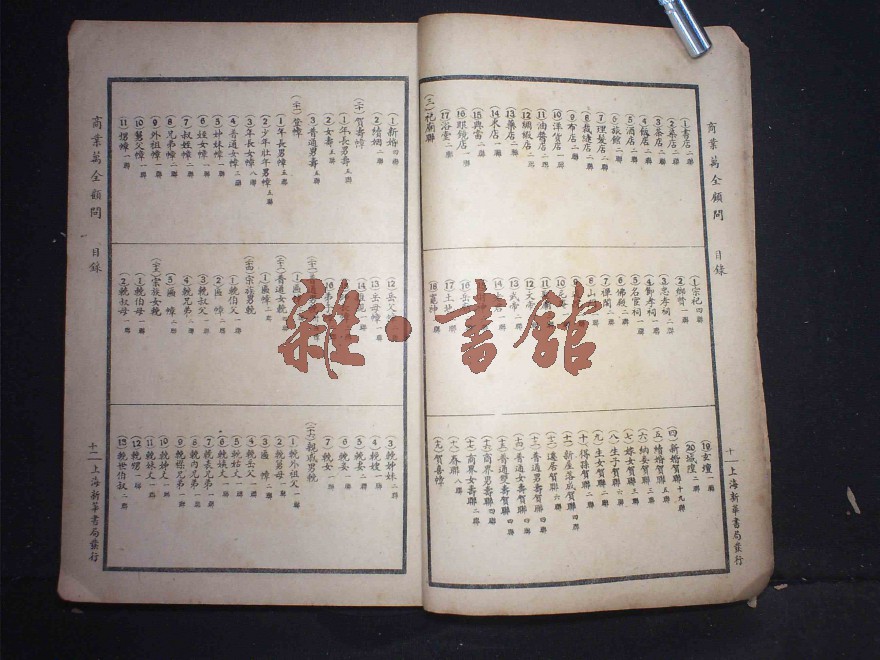 商業萬全顧問 目錄 十一 上海新華書局發行
①書店二聯
③茶店二聯
④飯店二聯
⑤酒店二聯
⑥旅館二聯
⑦理髮店二聯
⑧裁縫店二聯
⑨布店二聯
⑩洋貨店一聯
⑪油醬店二聯
⑫綢緞店二聯
⑬藥店二聯
⑭米店一聯
⑮典當二聯
⑯眼鏡店一聯
⑰浴堂二聯
(三)祀廟聯
①宗祀四聯
②鄉賢一聯
③忠孝祠二聯
④節孝祠一聯
⑤名宦祠一聯
⑥佛殿二聯
⑦禪閣二聯
文帝
⑬武帝二聯
⑰土地
⑱竈神一聯
⑲玄壇一聯
⑳城隍二聯
(四)新婚賀聯十九聯
(五)續婚賀聯五聯
(六)納妾賀聯三聯
(七)嫁女賀聯三聯
(八)生子賀聯六聯
(九)生女賀聯二聯
(十)得孫賀聯二聯
(十一)新屋落成賀聯四聯
(十二)遷居賀聯六聯
(十三)普通男壽賀聯四聯
(十四)普通女壽賀聯四聯
(十五)普通雙壽賀聯四聯
(十六)商界男壽聯四聯
(十七)商界女壽聯二聯
(十八)春聯八聯
(十九)賀喜幛
商業萬全顧問 目錄 十二 上海新華書局發行
①新婚四聯
②續婚一聯
(二十)賀壽幛
①年長男壽五聯
②女壽五聯
③普通男壽五聯
①年長男幛五聯
②少年壯年男幛五聯
③年長女幛八聯
④普通女幛二聯
⑤姊妹幛一聯
⑥姪女幛一聯
⑦叔姪幛一聯
⑧兄弟幛二聯
⑨外祖幛一聯
⑩舅父幛一聯
⑪甥幛一聯
⑫岳父
⑬岳母幛
普通女輓
①匾幛二聯
宗族男輓
①輓伯父一聯
②匾幛二聯
③輓叔父一聯
④輓兄弟二聯
⑤匾幛二聯
宗族女輓
①輓伯母一聯
②輓叔母一聯
③輓姊妹二聯
④輓嫂一聯
⑤輓妻二聯
⑥輓妾一聯
⑦輓女一聯
親戚男輓
①輓外祖父一聯
②輓舅母二聯
③匾幛二聯
④輓岳父一聯
⑤輓姑丈一聯
⑥輓姨丈一聯
⑦輓表兄弟一聯
⑧輓內兄弟一聯
⑨輓襟兄弟一聯
⑩輓姊丈一聯
⑪輓妹丈一聯
⑫輓甥一聯
⑬輓世伯叔二聯
雜·書館